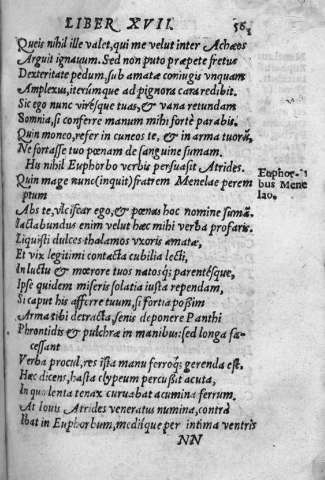 LIBER XVII. 561
Queis nihil ille valet, qui me velut inter Achæos
Arguit ignauum. Sed non puto præpete fretus
Dexteritate pedum, sub amatæ coniugis vnquam
Amplexus, iterúmque ad pignora cara redibit.
Sic ego nunc virésque tuas, & vana retundam
Somnia, si conferre manum mihi fortè parabis.
Quin moneo, refer in cuneos te, & in arma tuorũ,
Ne fortasse tuo pœnam de sanguine sumam.
His nihil Euphorbo verbis persuasit Atrides.
Quin mage nunc (inquit) fratrem Menelae perem
ptum
Euphor-
bus Mene
lao.
Abs te, vlciscar ego, & pœnas hoc nomine sumã.
Iactabundus enim velut hæc mihi verba profaris.
Liquisti dulces thalamos vxoris amatæ,
Et vix legitimi contacta cubilia lecti,
In luctu & mœrore tuos natosq; parentésque,
Ipse quidem miseris solatia iusta rependam,
Si caput his afferre tuum, si fortia possim
Arma tibi detracta, senis deponere Panthi
Phrontidis & pulchræ in manibus: sed longa fa-
cessant
Verba procul, res ista manu ferroq; gerenda est.
Hæc dicens, hasta clypeum percussit acuta,
In quo lenta tenax curuabat acumina ferrum.
At Iouis Atrides veneratus numina, contrà
Ibat in Euphorbum, mediíque per intima ventris
NN